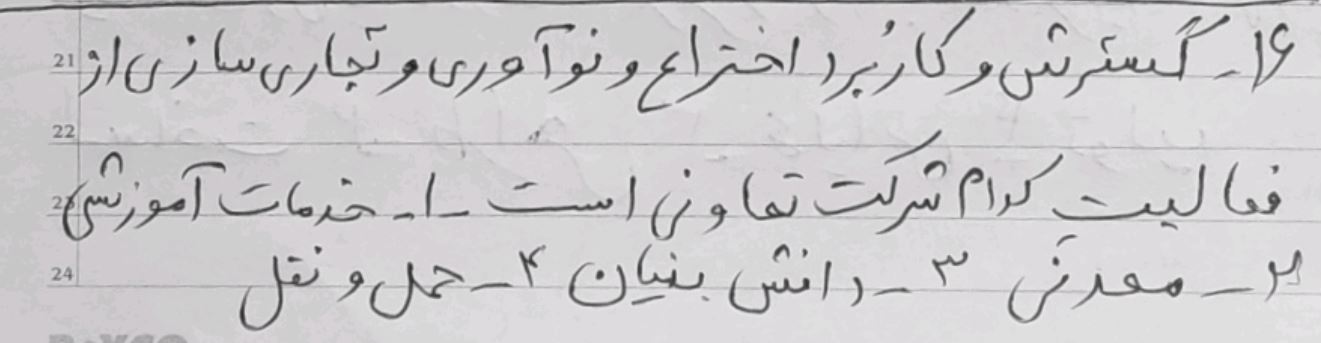 ۱۶- گسترش و کاربرد اختراع و نوآوری و تجاری سازی از
21
22
فعالیت کدام شرکت تعاونی است ۱- خدمات آموزشی
23
۲- معدنی ۳- دانش بنیان ۴- حمل و نقل
24